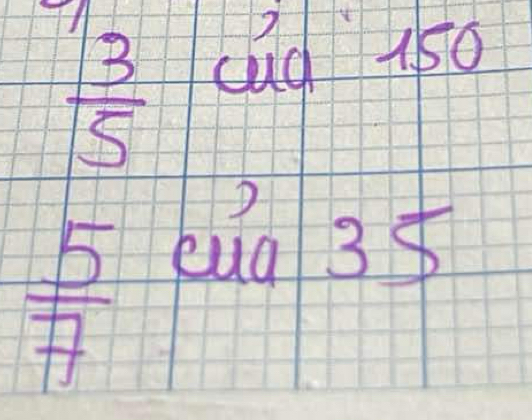 3/5 của 150
5/7 của 35